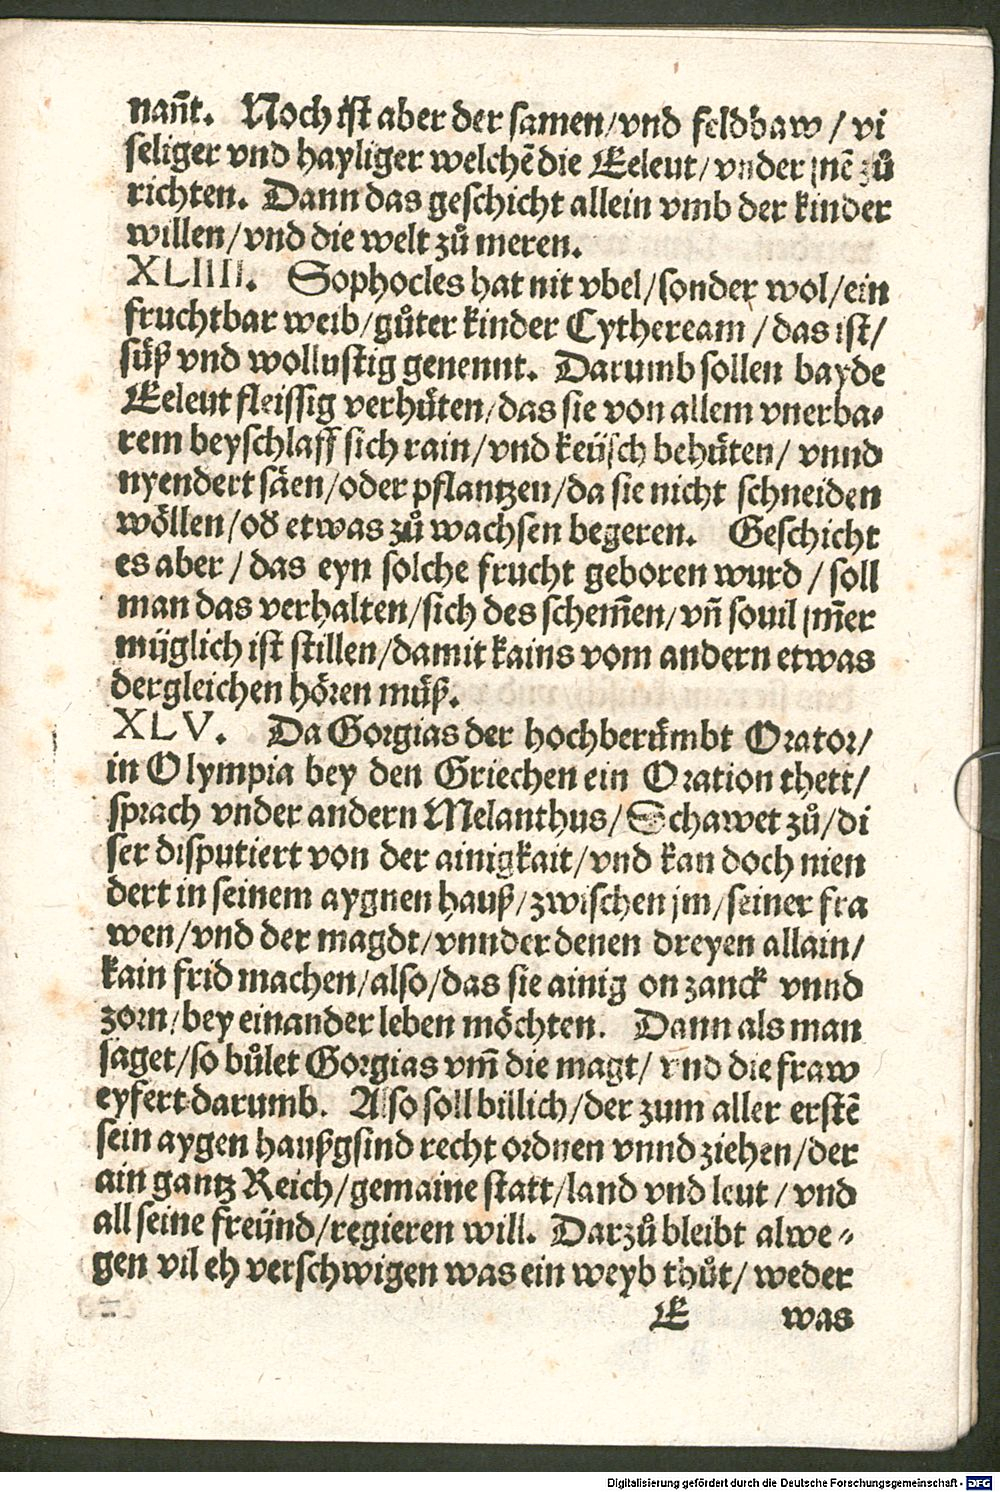 nañt. Noch ist aber der samen/vnd feldbaw / vil
seliger vnd hayliger welchẽ die Eeleut/vnder jnẽ zů
richten. Dann das geschicht allein vmb der kinder
willen/vnd die welt zů meren.
XLIIII. Sophocles hat nit vbel/sonder wol/ein
fruchtbar weib/gůter kinder Cytheream/das ist/
süß vnd wollustig genennt. Darumb sollen bayde
Eeleut fleissig verhüten/das sie von allem vnerba-
rem beyschlaff sich rain/vnd keüsch behüten/ vnnd
nyendert säen/oder pflantzen/da sie nicht schneiden
wöllen/od̕ etwas zů wachsen begeren. Geschicht
es aber / das eyn solche frucht geboren wurd / soll
man das verhalten/sich des schem̃en/vñ souil jm̃er
müglich ist stillen/damit kains vom andern etwas
dergleichen hören müß.
XLV. Da Gorgias der hochberümbt Orator/
in Olympia bey den Griechen ein Oration thett/
sprach vnder andern Melanthus/Schawet zů/di
ser disputiert von der ainigkait/vnd kan doch nien
dert in seinem aygnen hauß/zwischen jm/seiner fra
wen/vnd der magdt/vnnder denen dreyen allain/
kain frid machen/also/das sie ainig on zanck vnnd
zorn/bey einander leben möchten. Dann als man
saget/so bůlet Gorgias vm̃ die magt/ vnd die fraw
eyfert darumb. Also soll billich/der zum aller erstẽ
sein aygen haußgsind recht ordnen vnnd ziehen/der
ain gantz Reich/gemaine statt/land vnd leut / vnd
all seine freünd/regieren will. Darzů bleibt alwe-
gen vil eh verschwigen was ein weyb thůt/ weder
E was
Digitalisierung gefördert durch die Deutsche Forschungsgemeinschaft - DFG